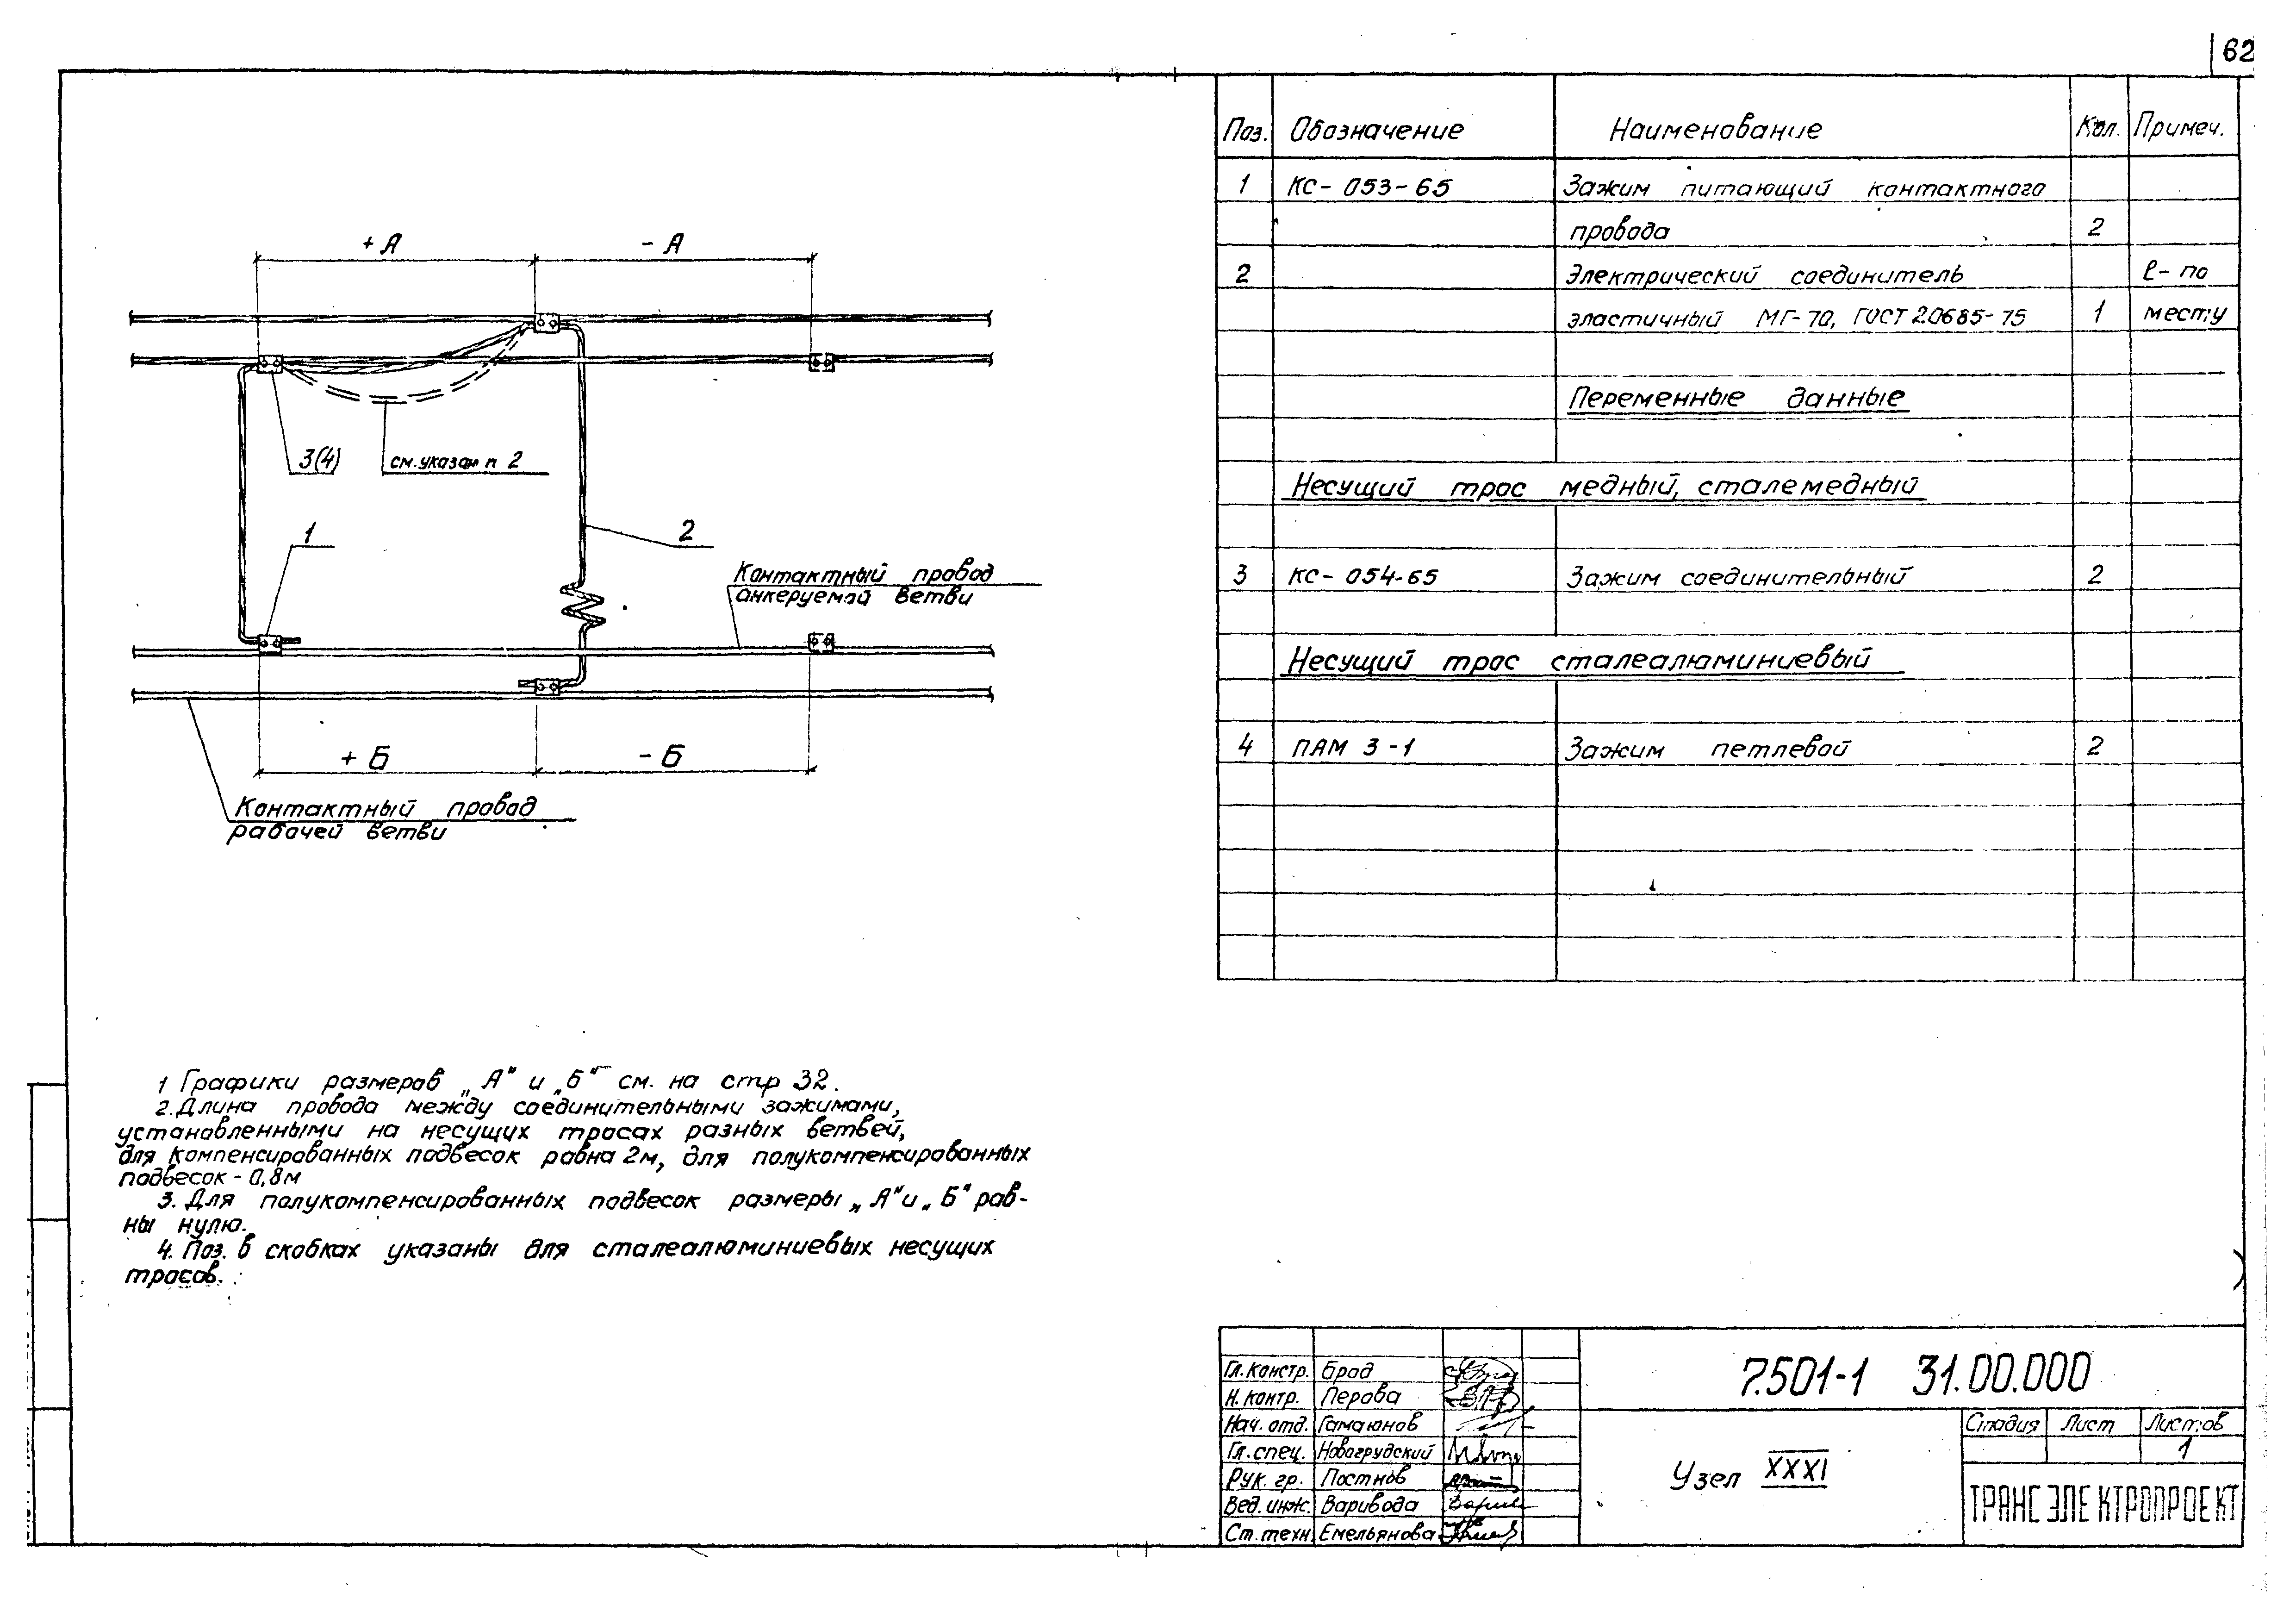 62
+ А
- А
3(4)
см. указан п 2
1
2
Контактный провод
анкеруемой ветви
+ Б
- Б
Контактный провод
рабочей ветви
Поз. Обозначение Наименование Кол. Примеч.
1 КС- 053-65 Зажим питающий контактного
провода 2
2 Электрический соединитель ℓ- по
эластичный МГ-70, ГОСТ 20685-75 1 месту
Переменные данные
Несущий трос медный, сталемедный
3 КС- 054-65 Зажим соединительный 2
Несущий трос сталеалюминиевый
4 ПАМ 3-1 Зажим петлевой 2
1 Графики размеров „А" и „Б" см. на стр 32.
2. Длина провода между соединительными зажимами,
установленными на несущих тросах разных ветвей,
для компенсированных подвесок равна 2м, для полукомпенсированных
подвесок - 0,8м
3. Для полукомпенсированных подвесок размеры „А" и „Б" рав-
ны нулю.
4. Поз. в скобках указаны для сталеалюминиевых несущих
тросов.
Гл. констр. Брод
Н. контр. Перова
Нач. отд. Гамаюнов
Гл. спец. Новогрудский
Рук. гр. Постнов
Вед. инж. Варивода
Ст. техн. Емельянова
7.501-1 31.00.000
Узел XXXI
Стадия Лист Листов
1
ТРАНСЭЛЕКТРОПРОЕКТ